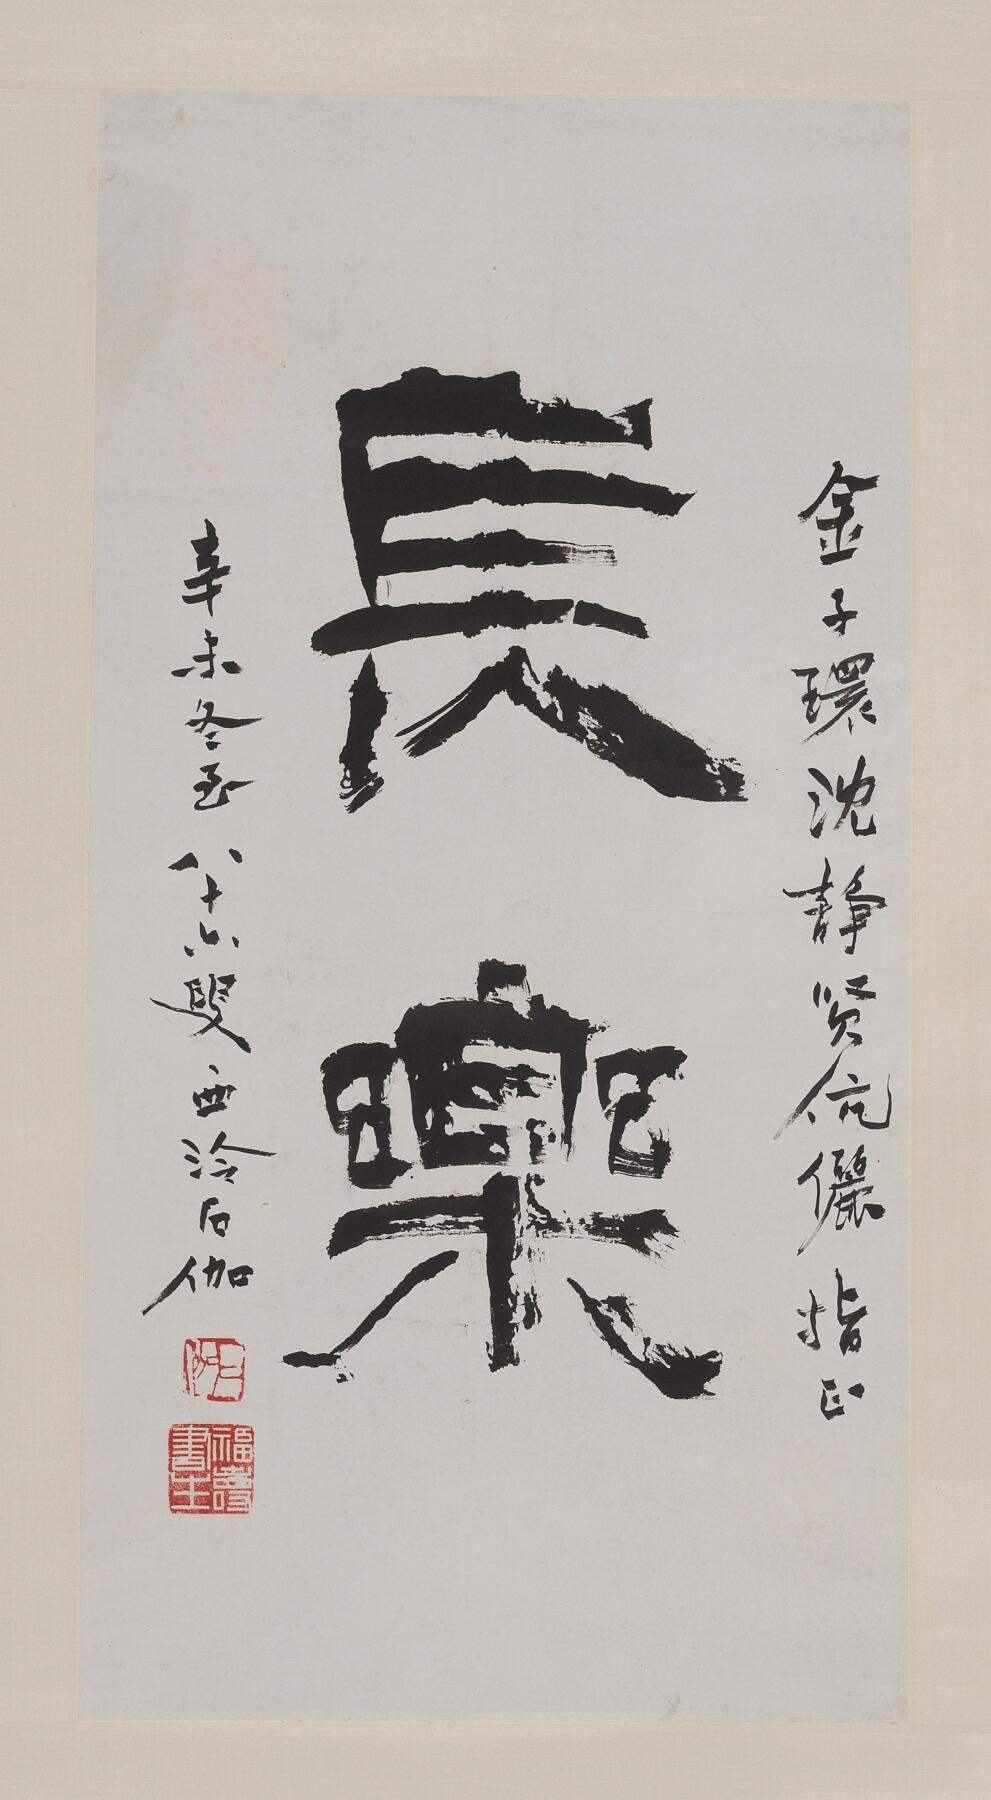 金子環沈静贤伉儷指正
長樂
辛未冬至八十六叟西泠石伽
石伽
福壽書王